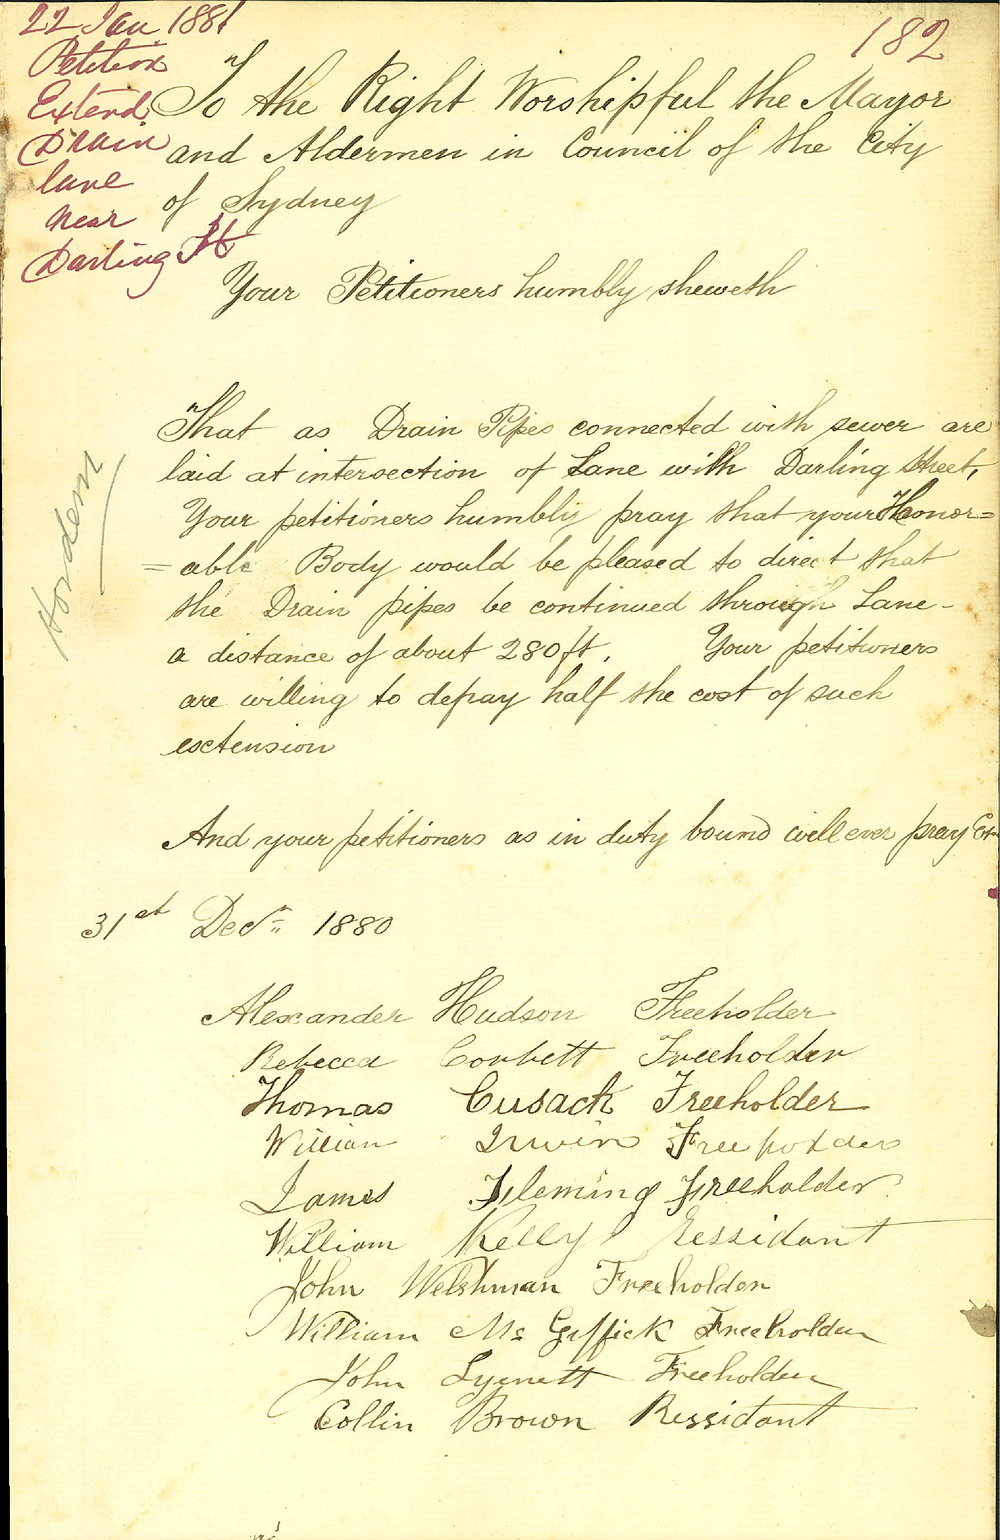 22 Jan 1881
Petition
Extend.
Drain
lane
near
Darling St
182
To the Right Worshipful the Mayor
and Aldermen in Council of the City
of Sydney
Your Petitioners humbly sheweth
That as Drain Pipes connected with sewer are
laid at intersection of Lane with Darling Street,
Your petitioners humbly pray that your Honor=
=able Body would be pleased to direct that
the Drain pipes be continued through Lane -
a distance of about 280ft. Your petitioners
are willing to defray half the cost of such
extension
Hordern
And your petitioners as in duty bound will ever pray &c
31st Decr 1880
Alexander Hudson Freeholder
Rebecca Corbett Freeholder
Thomas Cusack Freeholder
William Irwin Freeholder
James Fleming Freeholder
William Kelly Ressidant
John Welshman Freeholder
William Mc Giffick Freeholder
John Lynett Freeholder
Collin Brown Ressidant